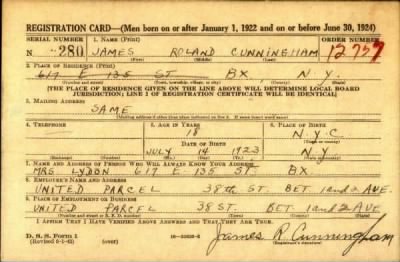 REGISTRATION CARD—(Men born on or after January 1, 1922 and on or before June 30, 1924)
SERIAL NUMBER 1. NAME (Print) ORDER NUMBER
N 280 JAMES ROLAND CUNNINGHAM 12727
(First) (Middle) (Last)
2. PLACE OF RESIDENCE (Print)
617 E 135 ST BX. N.Y.
(Number and street) (Town, township, village, or city) (County) (State)
[THE PLACE OF RESIDENCE GIVEN ON THE LINE ABOVE WILL DETERMINE LOCAL BOARD
JURISDICTION; LINE 2 OF REGISTRATION CERTIFICATE WILL BE IDENTICAL]
3. MAILING ADDRESS
SAME
4. TELEPHONE 5. AGE IN YEARS 6. PLACE OF BIRTH
18 N.Y.C
DATE OF BIRTH
JULY 14 1923 N.Y.
7. NAME AND ADDRESS OF PERSON WHO WILL ALWAYS KNOW YOUR ADDRESS
MRS LYDON 617 E. 135 ST. BX.
8. EMPLOYER'S NAME AND ADDRESS
UNITED PARCEL 38th ST. BET 1 and 2 AVE.
9. PLACE OF EMPLOYMENT OR BUSINESS
UNITED PARCEL 38 ST. BET 1 and 2 AVE
I AFFIRM THAT I HAVE VERIFIED ABOVE ANSWERS AND THAT THEY ARE TRUE.
D. S. S. Form 1
(Revised 6-1-42) James R. Cunningham
(Registrant's signature)